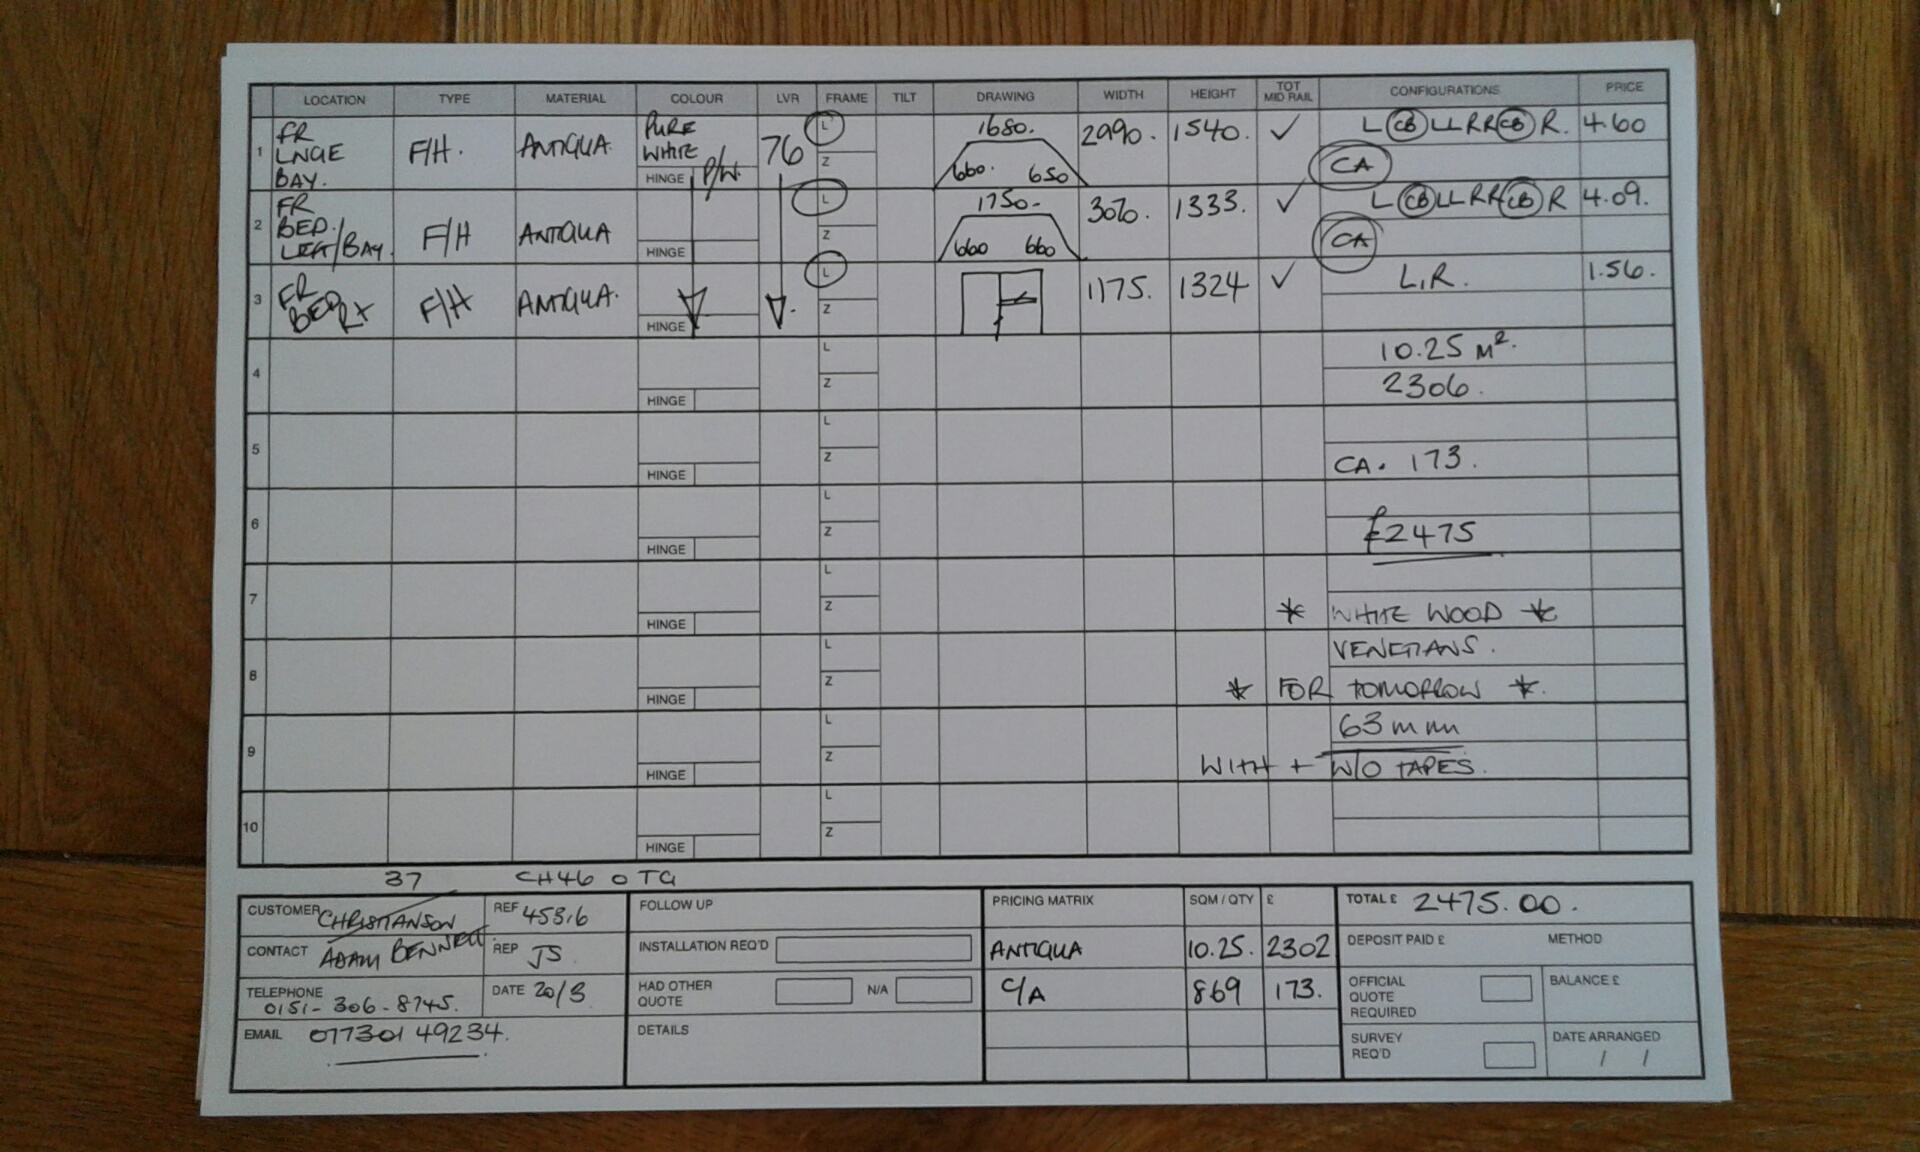 LOCATION TYPE MATERIAL COLOUR LVR FRAME TILT DRAWING WIDTH HEIGHT TOT MID RAIL CONFIGURATIONS PRICE
1 FR LNGE BAY. F/H. ANTIQUA. PURE WHITE HINGE P/W. 76 L Z 1680. 660. 650 2990. 1540. ✓ L CB LL RR CB R. 4.60
CA
2 FR BED. LEFT/BAY. F/H ANTIQUA HINGE L Z 1750- 660 660 1333. ✓ L CB LL RR CB R 4.09.
CA
3 FR BED RT F/H ANTIQUA. HINGE L Z 1175. 1324 ✓ L.R. 1.56.
4 HINGE L Z 10.25 M².
2306.
5 HINGE L Z
CA. 173.
6 HINGE L Z
£2475
7 HINGE L Z
* WHITE WOOD *
8 HINGE L Z VENETIANS.
* FOR TOMORROW *.
9 HINGE L Z 63mm
WITH + W/O TAPES.
10 HINGE L Z
37 CH46 0TG
CUSTOMER CHRISTIANSON REF 45316
CONTACT ADAM BENNETT REP JS
TELEPHONE 0151-306-8745. DATE 20/3
EMAIL 07730149234.
FOLLOW UP
INSTALLATION REQ'D
HAD OTHER QUOTE N/A
DETAILS
PRICING MATRIX SQM / QTY £
ANTIQUA 10.25. 2302
C/A 869 173.
TOTAL £ 2475.00.
DEPOSIT PAID £ METHOD
OFFICIAL QUOTE REQUIRED BALANCE £
SURVEY REQ'D DATE ARRANGED
/ /